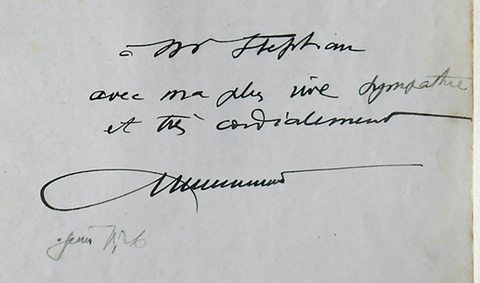 à Mr Stephan
avec ma plus vive sympathie
et très cordialement